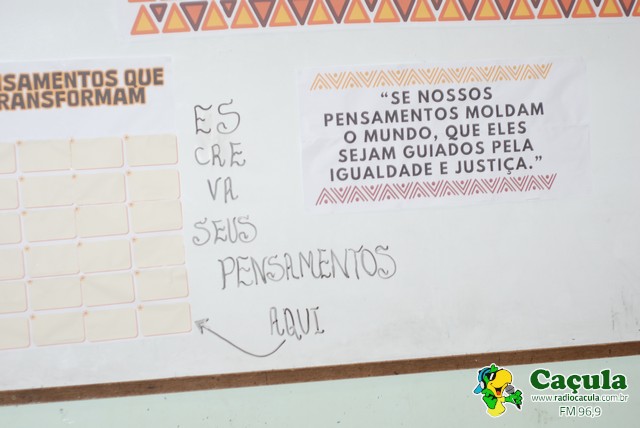 NSAMENTOS QUE
TRANSFORMAM
ES
CRE
VA
SEUS
PENSAMENTOS
AQUI
“SE NOSSOS
PENSAMENTOS MOLDAM
O MUNDO, QUE ELES
SEJAM GUIADOS PELA
IGUALDADE E JUSTIÇA.”
Caçula
www.radiocacula.com.br
FM 96,9